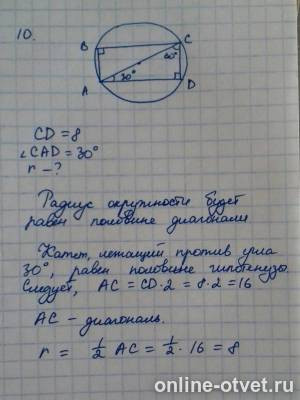 10.
B
C
60°
30°
A
D
CD = 8
∠CAD = 30°
r - ?
Радиус окружности будет
равен половине диагонали
Катет, лежащий против угла
30°, равен половине гипотенузы.
Следует, AC = CD · 2 = 8 · 2 = 16
AC - диагональ.
r = 1/2 AC = 1/2 · 16 = 8
online-otvet.ru